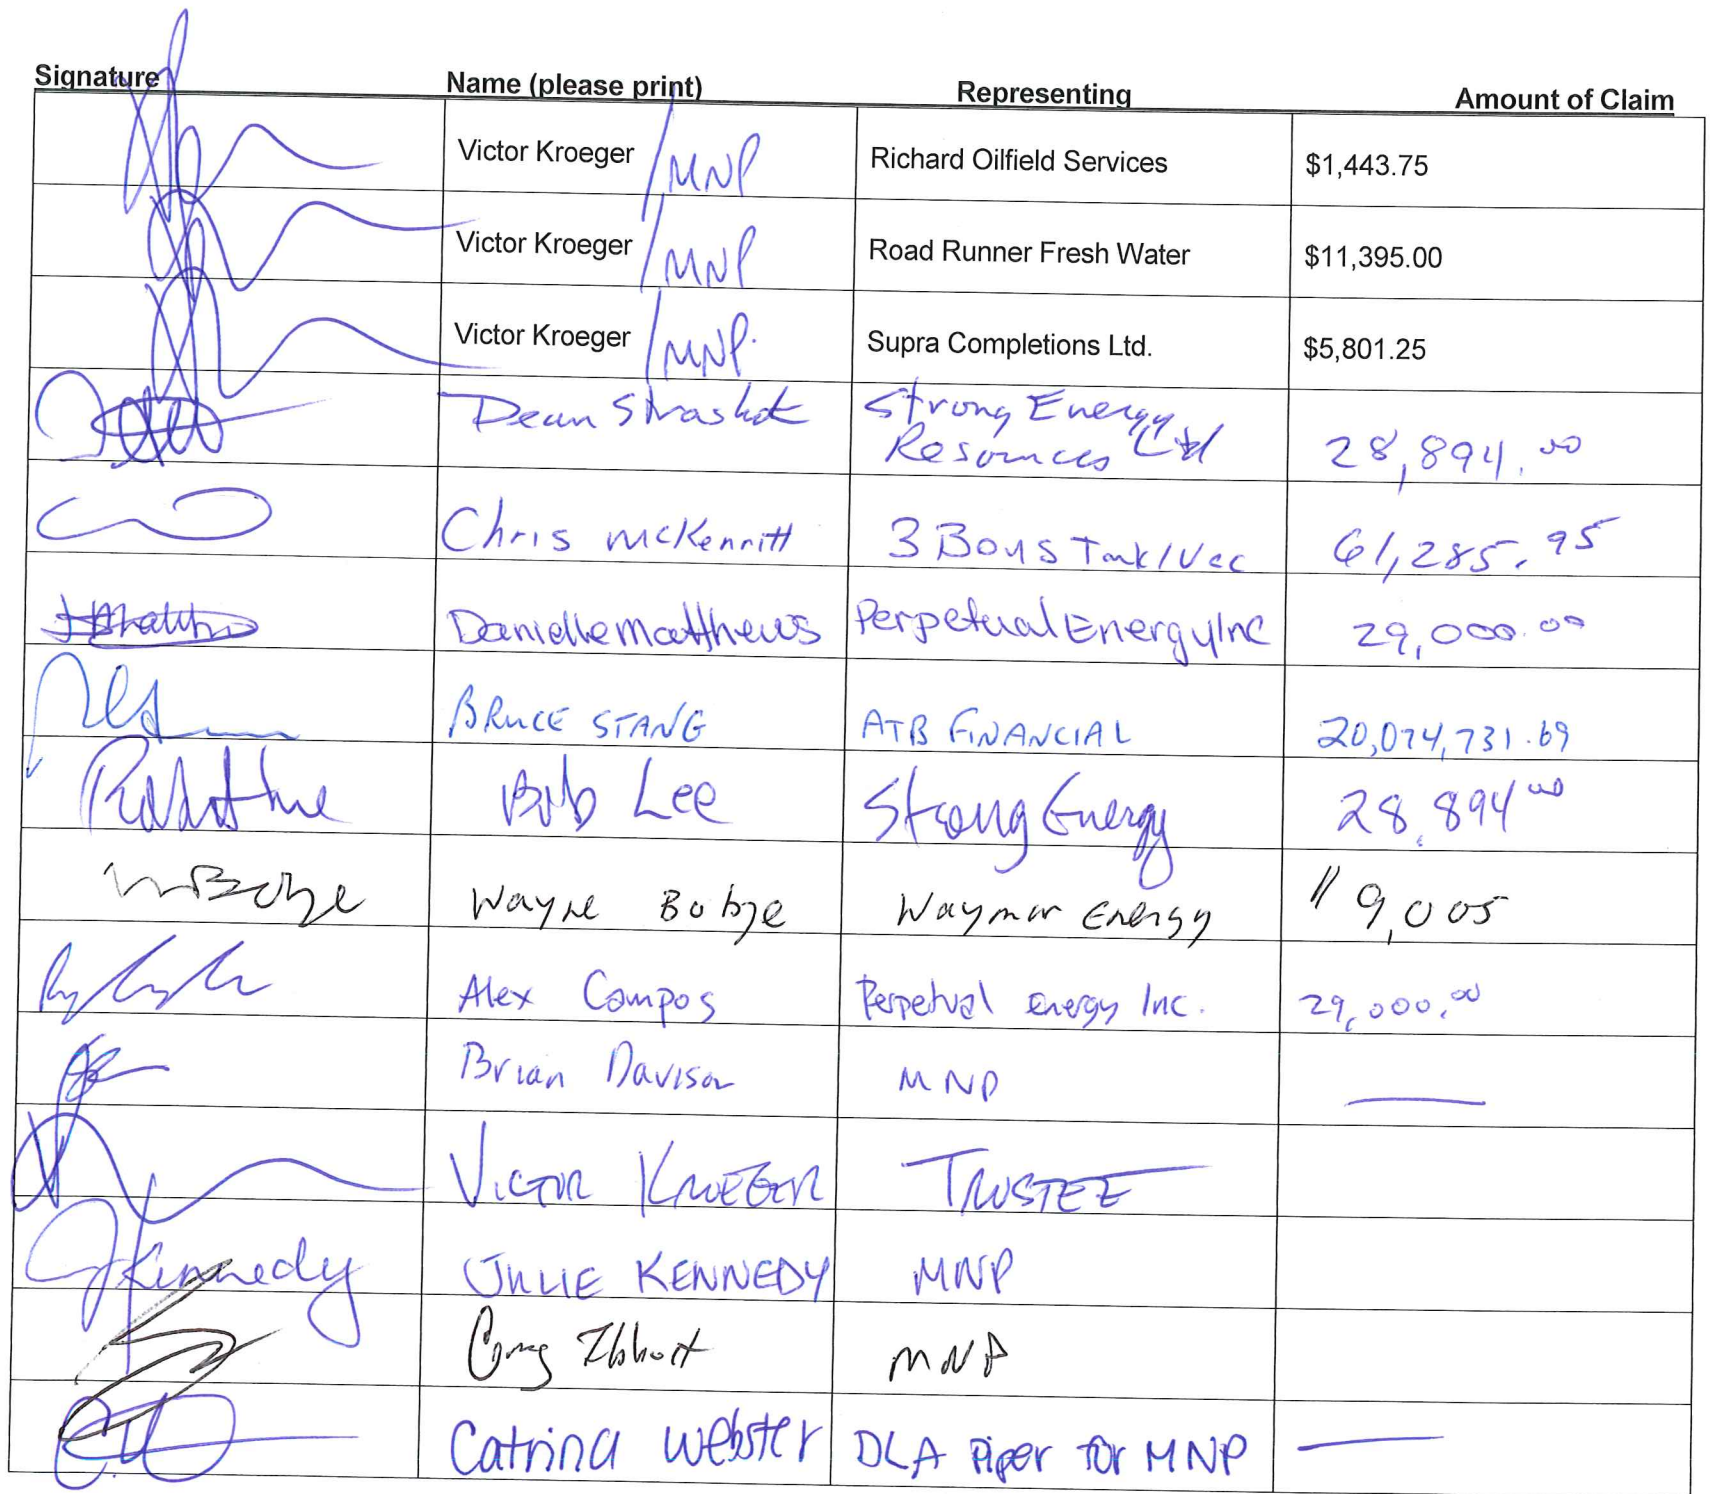 Signature Name (please print) Representing Amount of Claim
Victor Kroeger /MNP Richard Oilfield Services $1,443.75
Victor Kroeger /MNP Road Runner Fresh Water $11,395.00
Victor Kroeger /MNP. Supra Completions Ltd. $5,801.25
Dean Strong Energy
Resources Ltd 28,894.00
Chris McKennitt 3 Boys Tank/Vac 61,285.95
Danielle Matthews Perpetual Energy Inc 29,000.00
BRUCE STANG ATB FINANCIAL 20,074,731.69
Bob Lee Strong Energy 28,894 00
Wayne Bobye Waymar Energy 9,005
Alex Campos Perpetual energy Inc. 29,000.00
Brian Davison MNP —
VICTOR KROEGER TRUSTEE
JKennedy JULIE KENNEDY MNP
MNP
Catrina Webster DLA Piper for MNP —